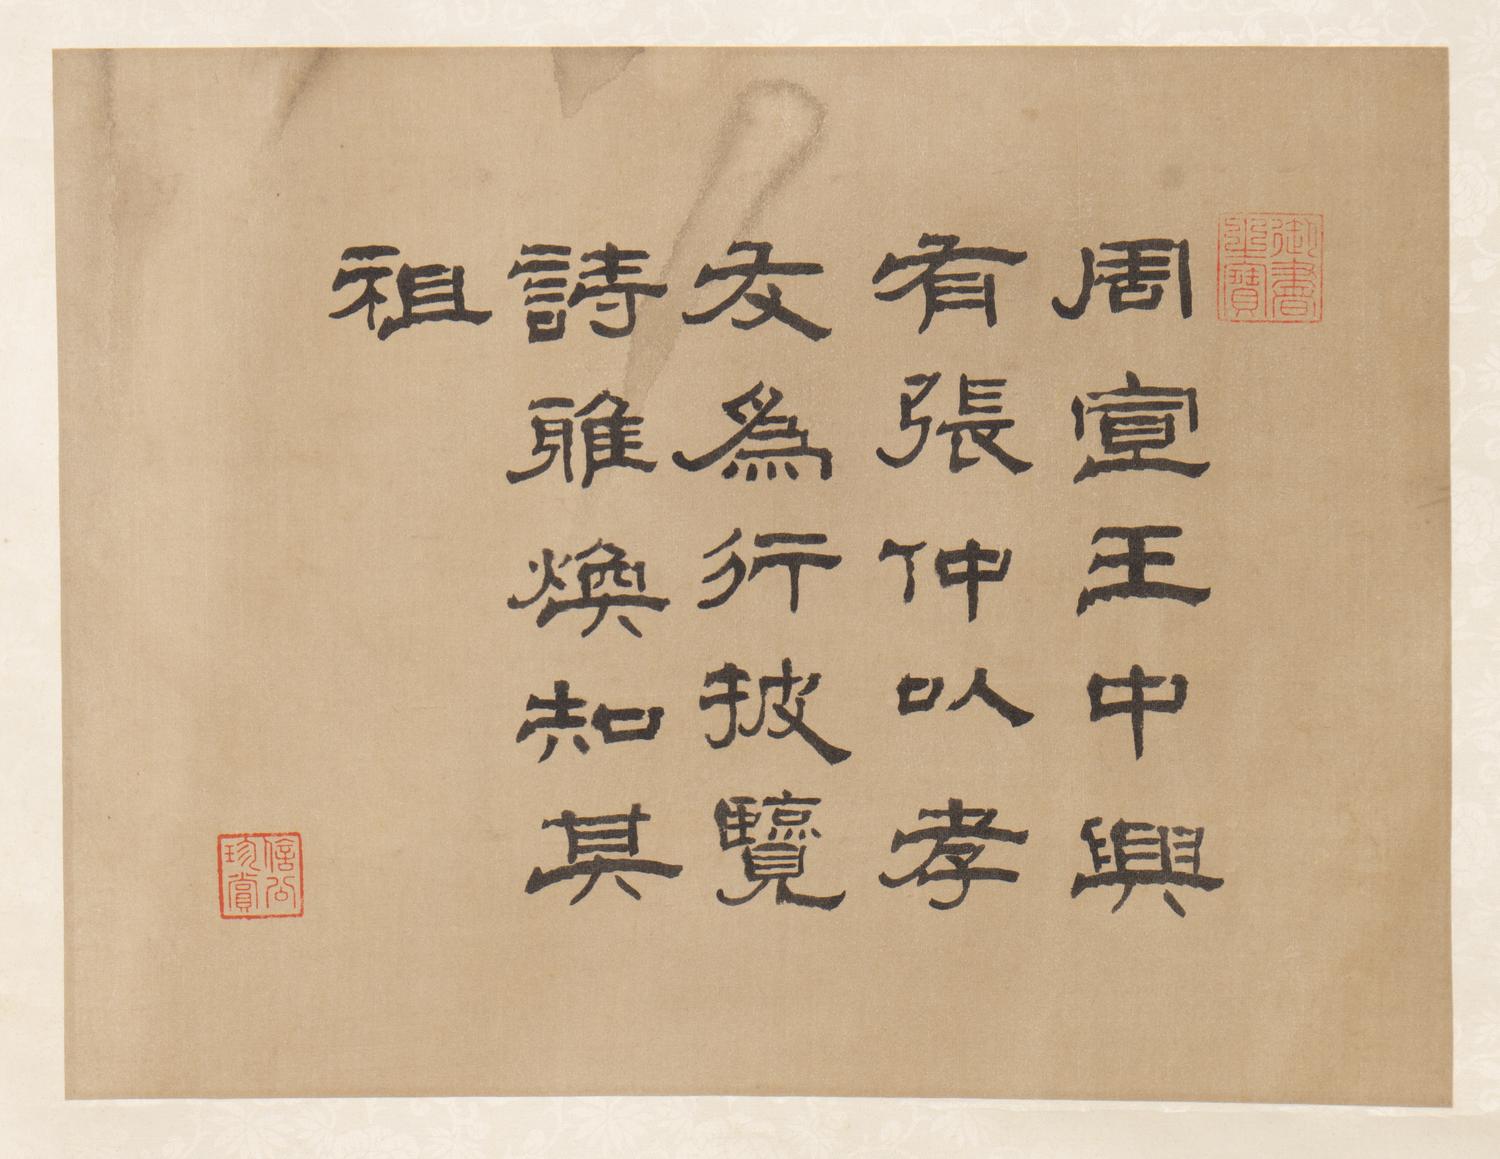 周宣王中興
有張仲以孝
友為行披覽
詩雅煥知其
祖
御書
之寶
信公
珍賞